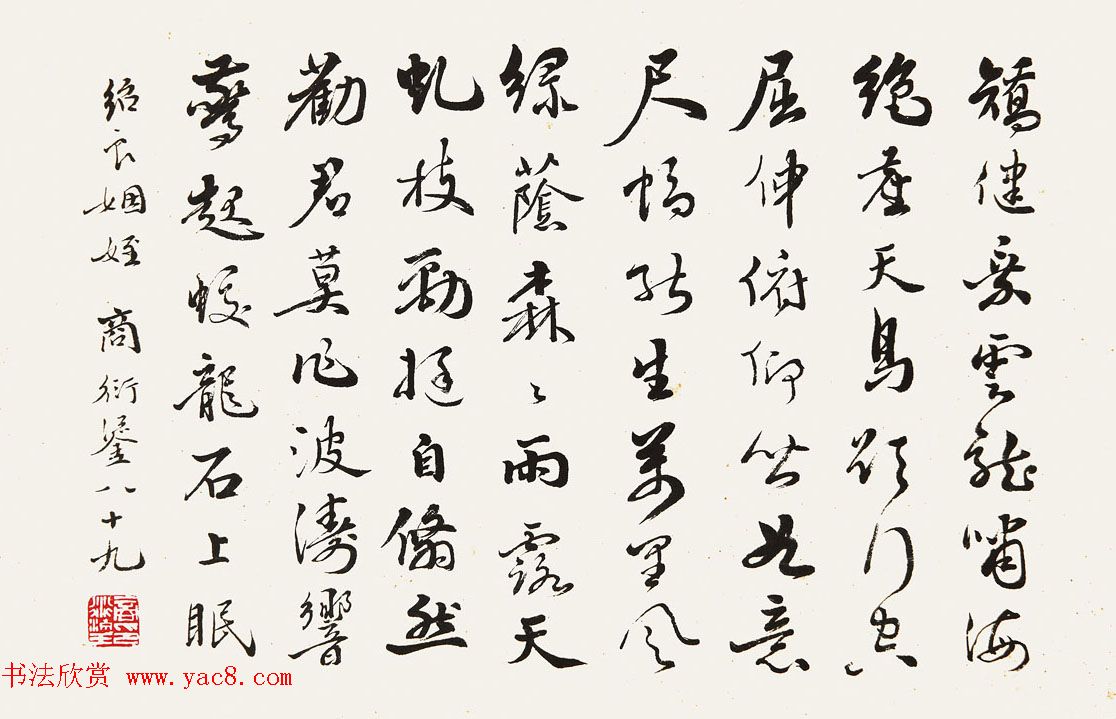 矯健乘雲龍嘯海
絶塵天馬欲行空
屈伸俯仰皆如意
尺幅能生萬里風
緑蔭森々雨露天
虬枝勁挺自翛然
勸君莫作波濤響
驚起蛟龍石上眠
紹良姻姪 商衍鎏八十九
书法欣赏 www.yac8.com